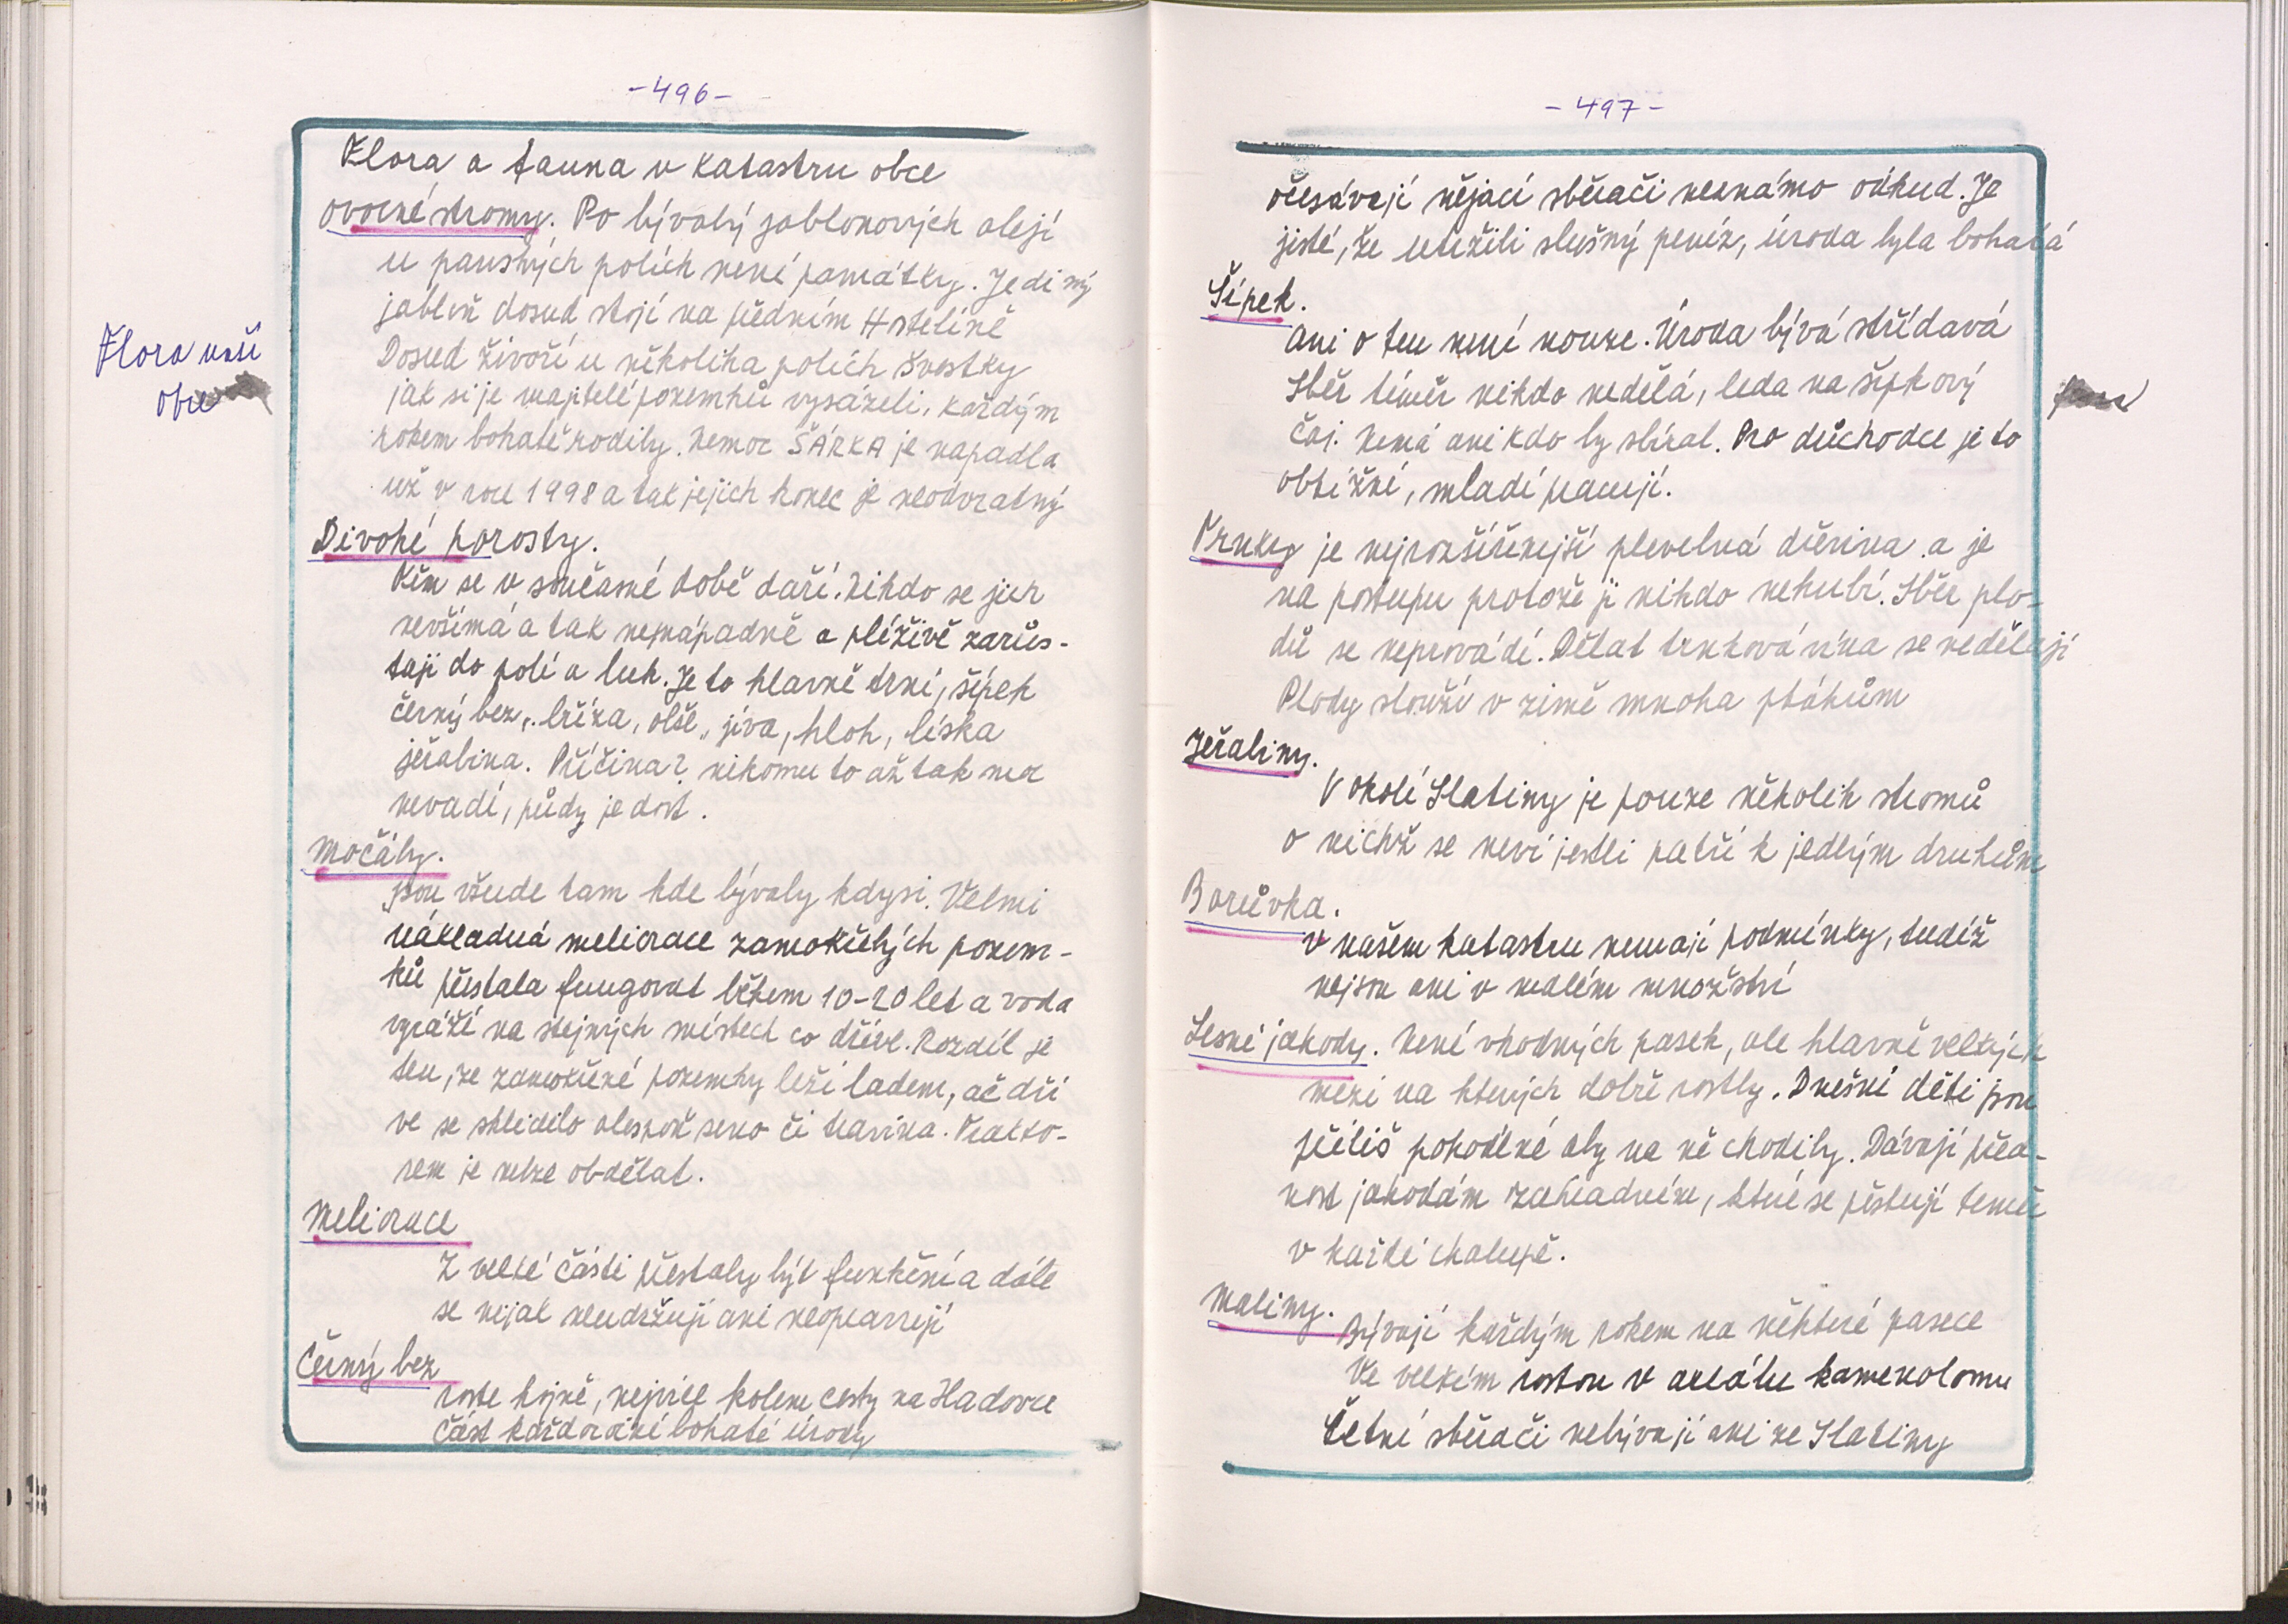 -496-
Flora a fauna v katastru obce
Ovocné stromy. Po bývalý jablonových alejí
u panských polích není památky. Jediný
jabloň dosud stojí na předním Hostelíně
Dosud živoří u několika polích švestky
jak si je majitelé pozemků vysázeli, každým
rokem bohatě rodily. Nemoc ŠÁRKA je napadla
už v roce 1998 a tak jejich konec je neodvratný
Divoké porosty.
Těm se v současné době daří. Nikdo se jich
nevšímá a tak nenápadně a plíživě zarůs-
tají do polí a luk. Je to hlavně trní, šípek
černý bez, bříza, olše, jíva, hloh, líska
jeřabina. Příčina? nikomu to až tak moc
nevadí, půdy je dost.
Močály.
jsou všude tam kde bývaly kdysi. Velmi
nákladná meliorace zamokřelých pozem-
ků přestala fungovat během 10-20 let a voda
vyráží na stejných místech co dříve. Rozdíl je
ten, že zamokřené pozemky leží ladem, ač dří
ve se sklidilo alespoň seno či travina. Trakto-
rem je nelze obdělat.
Meliorace
Z velké části přestaly být funkční a dále
se nijak neudržují ani neopravují
Černý bez
roste hojně, nejvíce kolem cesty na Hadovce
část každoroční bohaté úrody
Flora naší
obce
-497-
očesávají nějací sběrači neznámo odkud. Je
jisté, že utržili slušný peníz, úroda byla bohatá
Šípek.
Ani o ten není nouze. Úroda bývá střídavá
Sběr téměř nikdo nedělá, leda na šípkový
čaj. Nemá ani kdo by sbíral. Pro důchodce je to
obtížné, mladí pracují.
Trnky je nejrozšířenejší plevelná dřevina a je
na postupu protože ji nikdo nehubí. Sběr plo-
dů se neprovádí. Dělat trnková vína se nedělají
Plody slouží v zimě mnoha ptákům
Jeřabiny.
V okolí Slatiny je pouze několik stromů
o nichž se neví jestli patří k jedlým druhům
Borůvka.
v našem katastru nemají podmínky, tudíž
nejsou ani v malém množství
Lesní jahody. Není vhodných pasek, ale hlavně velkých
mezí na kterých dobře rostly. Dnešní děti jsou
příliš pohodlné aby na ně chodily. Dávají před-
nost jahodám zahradním, které se pěstují téměř
v každé chalupě.
Maliny. Bývají každým rokem na některé pasece
Ve velkém rostou v areálu kamenolomu
Četní sběrači nebývají ani ze Slatiny